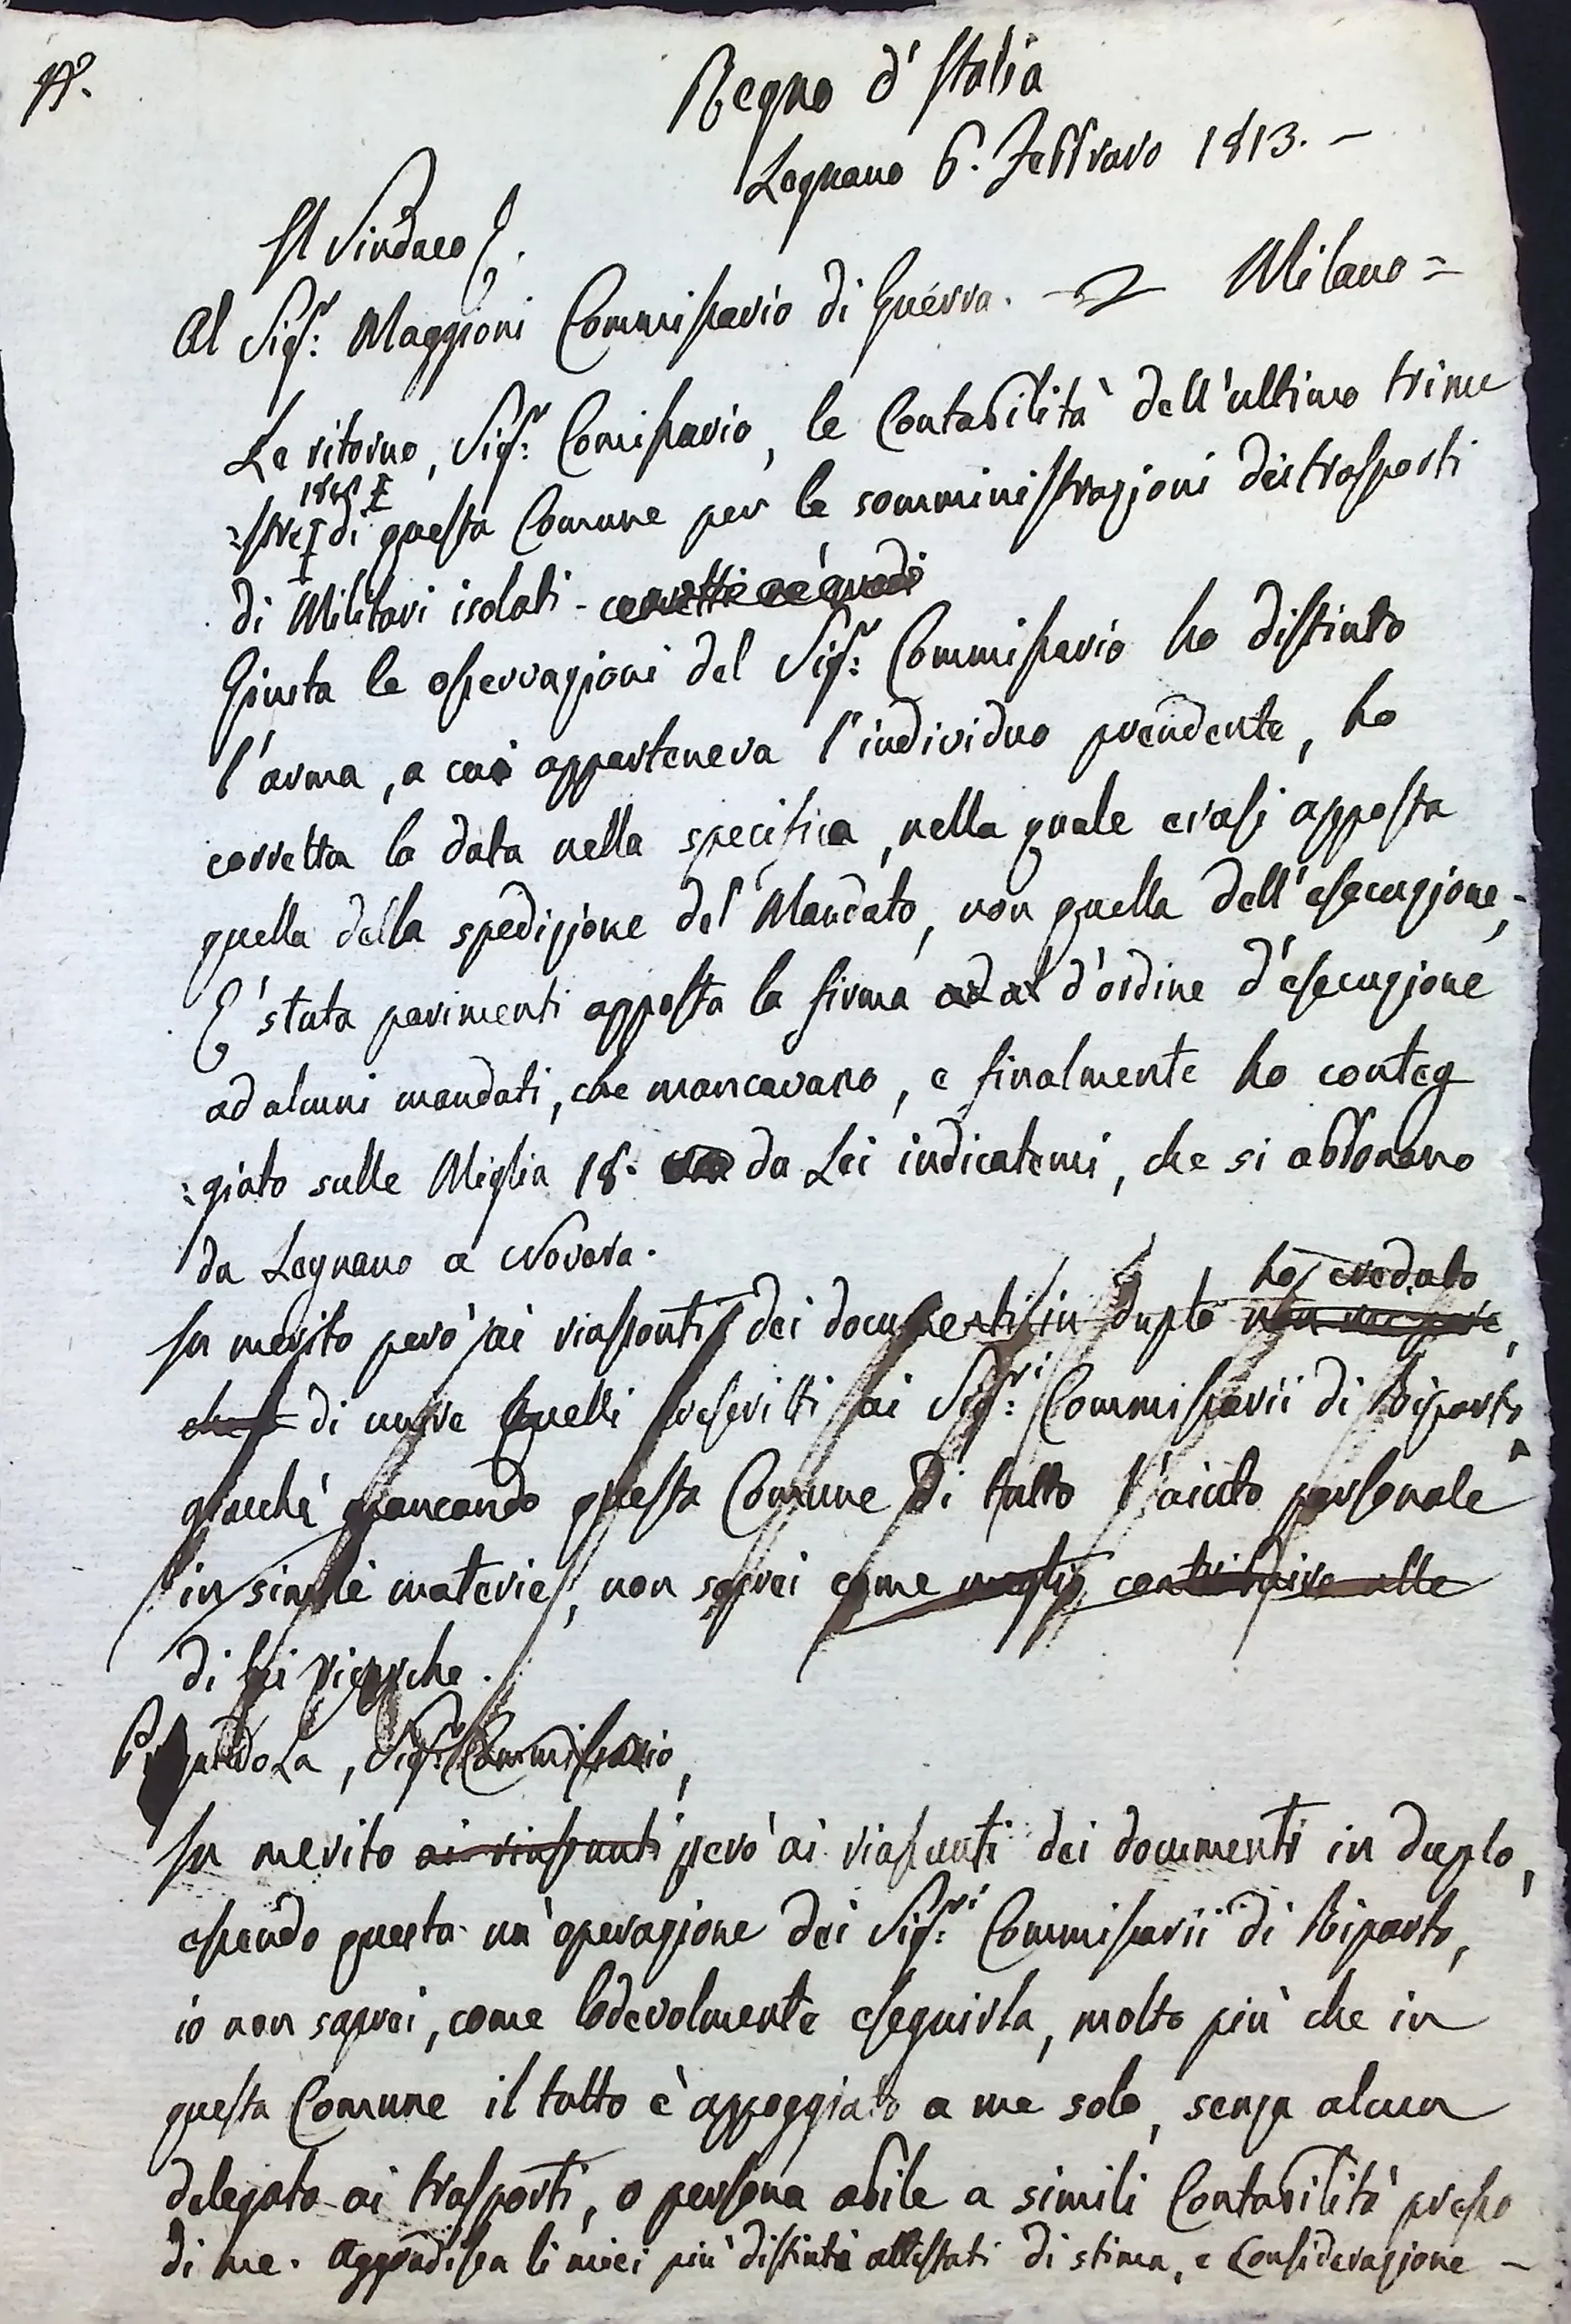 N.°
Regno d'Italia
Legnano 6. Febbraro 1813. -
Il Sindaco
Al Sig.r Maggioni Commissario di Guerra. Milano =
Le ritorno, Sig.r Comissario, le Contabilità dell'ultimo trime
=stre di questa Comune per le somministrazioni dei trasporti
di Militari isolati -
Giusta le osservazioni del Sig.r Commissario ho distinto
l'arma, a cui apparteneva l'individuo prendente, ho
corretta la data nella specifica, nella quale erasi apposta
quella della spedizione del Mandato, non quella dell'esecuzione;
E' stata parimenti apposta la firma ad al d'ordine d'esecuzione
ad alcuni mandati, che mancavano, e finalmente ho conteg
=giato sulle Miglia 18. da Lei indicatemi, che si abbonano
da Legnano a Novara.
ho creduto
In merito però ai riassunti dei documenti in duplo
di unire quelli prescritti ai Sig.ri Commissarii di Riparto,
giacchè mancando questa Comune di tutto l'aiuto personale
in simile materie, non saprei come meglio contribuire alle
di lei ricerche.
Sig.r Commissario,
In merito ai riassunti però ai riassunti dei documenti in duplo,
essendo questa un'operazione dei Sig.ri Commissarii di Riparto,
io non saprei, come lodevolmente eseguirla, molto più che in
questa Comune il tutto è appoggiato a me solo, senza alcun
delegato ai trasporti, o persona abile a simili Contabilità presso
di me. Aggradisca li miei più distinti attestati di stima, e Considerazione -